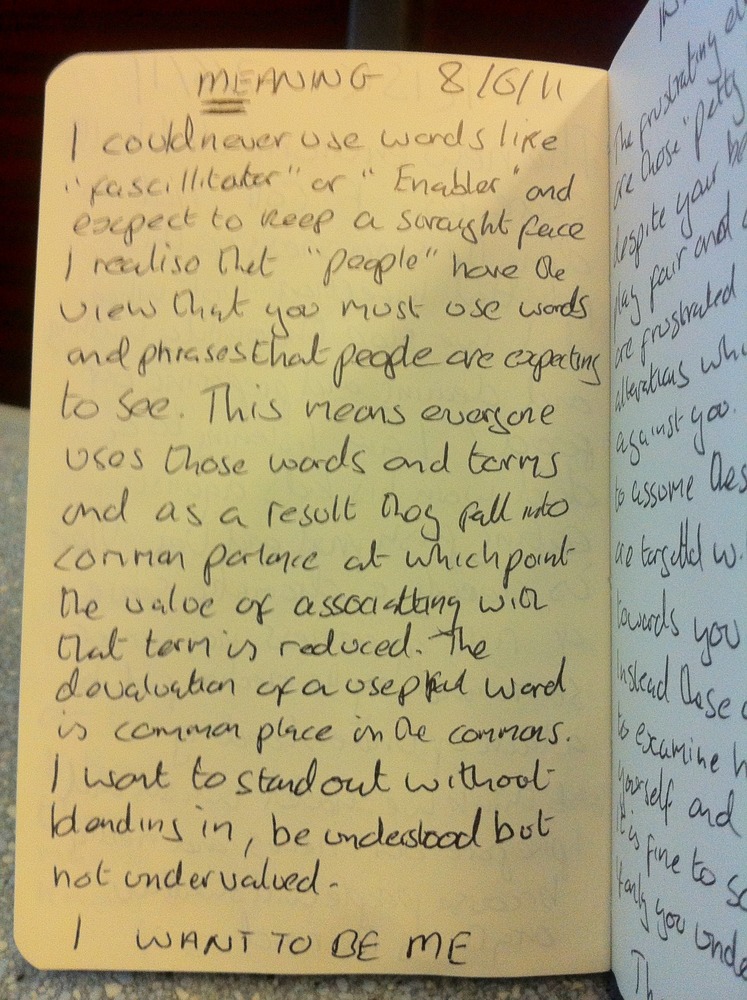 MEANING 8/6/11
I could never use words like
"fascillitator" or "Enabler" and
expect to keep a straight face
I realise that "people" have the
view that you must use words
and phrases that people are expecting
to see. This means everyone
uses those words and terms
and as a result they fall into
common parlance at which point
the value of associatting with
that term is reduced. The
devaluation of a useful word
is common place in the commons.
I want to stand out without
blending in, be understood but
not undervalued.
I WANT TO BE ME
The frustrating
are those "petty
despite your be
play fair and
are frustrated
alterations whi
against you.
to assume thes
are targetted w
towards you
instead these
to examine h
yourself and
it is fine to s
only you unde
Th